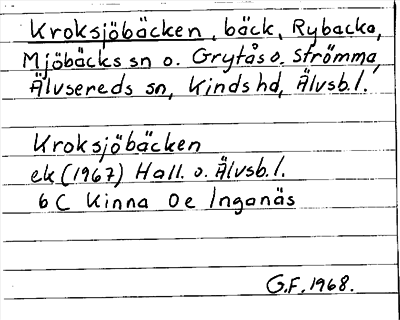 Kroksjöbäcken, bäck, Rybacka,
Mjöbäcks sn o. Grytås o. Strömma,
Älvsereds sn, Kinds hd, Älvsb.l.
Kroksjöbäcken
ek (1967) Hall. o. Älvsb.l.
6 C Kinna 0 e Inganäs
G.F. 1968.